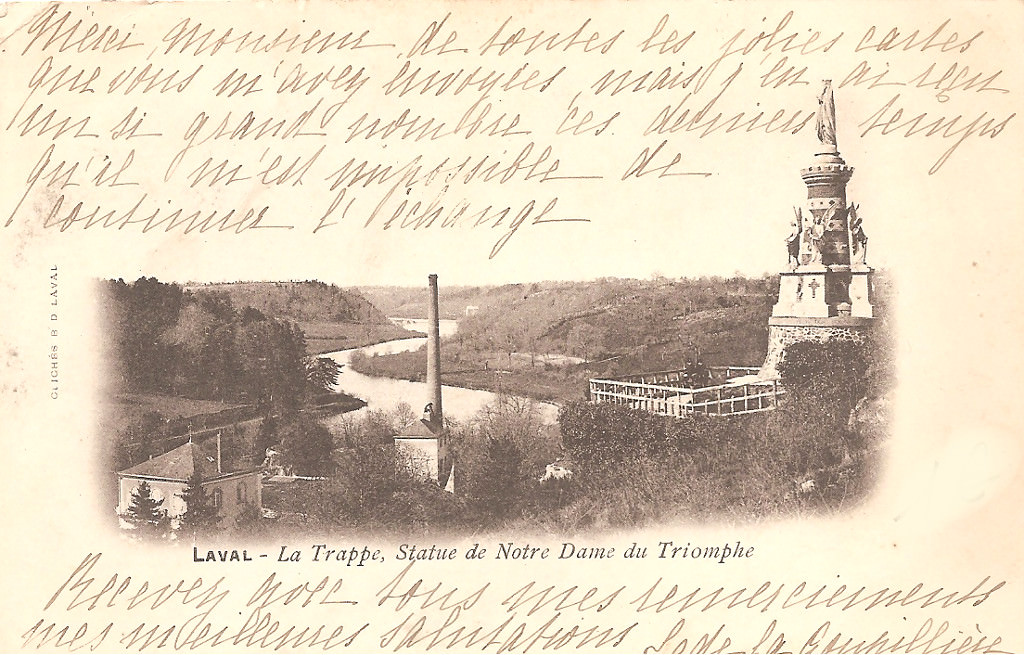 Merci, monsieur de toutes les jolies cartes
que vous m'avez envoyées, mais j'en ai reçu
un si grand nombre ces derniers temps
qu'il m'est impossible de
continuer l'échange
CLICHÉS R D LAVAL
LAVAL - La Trappe, Statue de Notre Dame du Triomphe
Recevez avec tous mes remerciements
mes meilleures salutations de la Goupillière